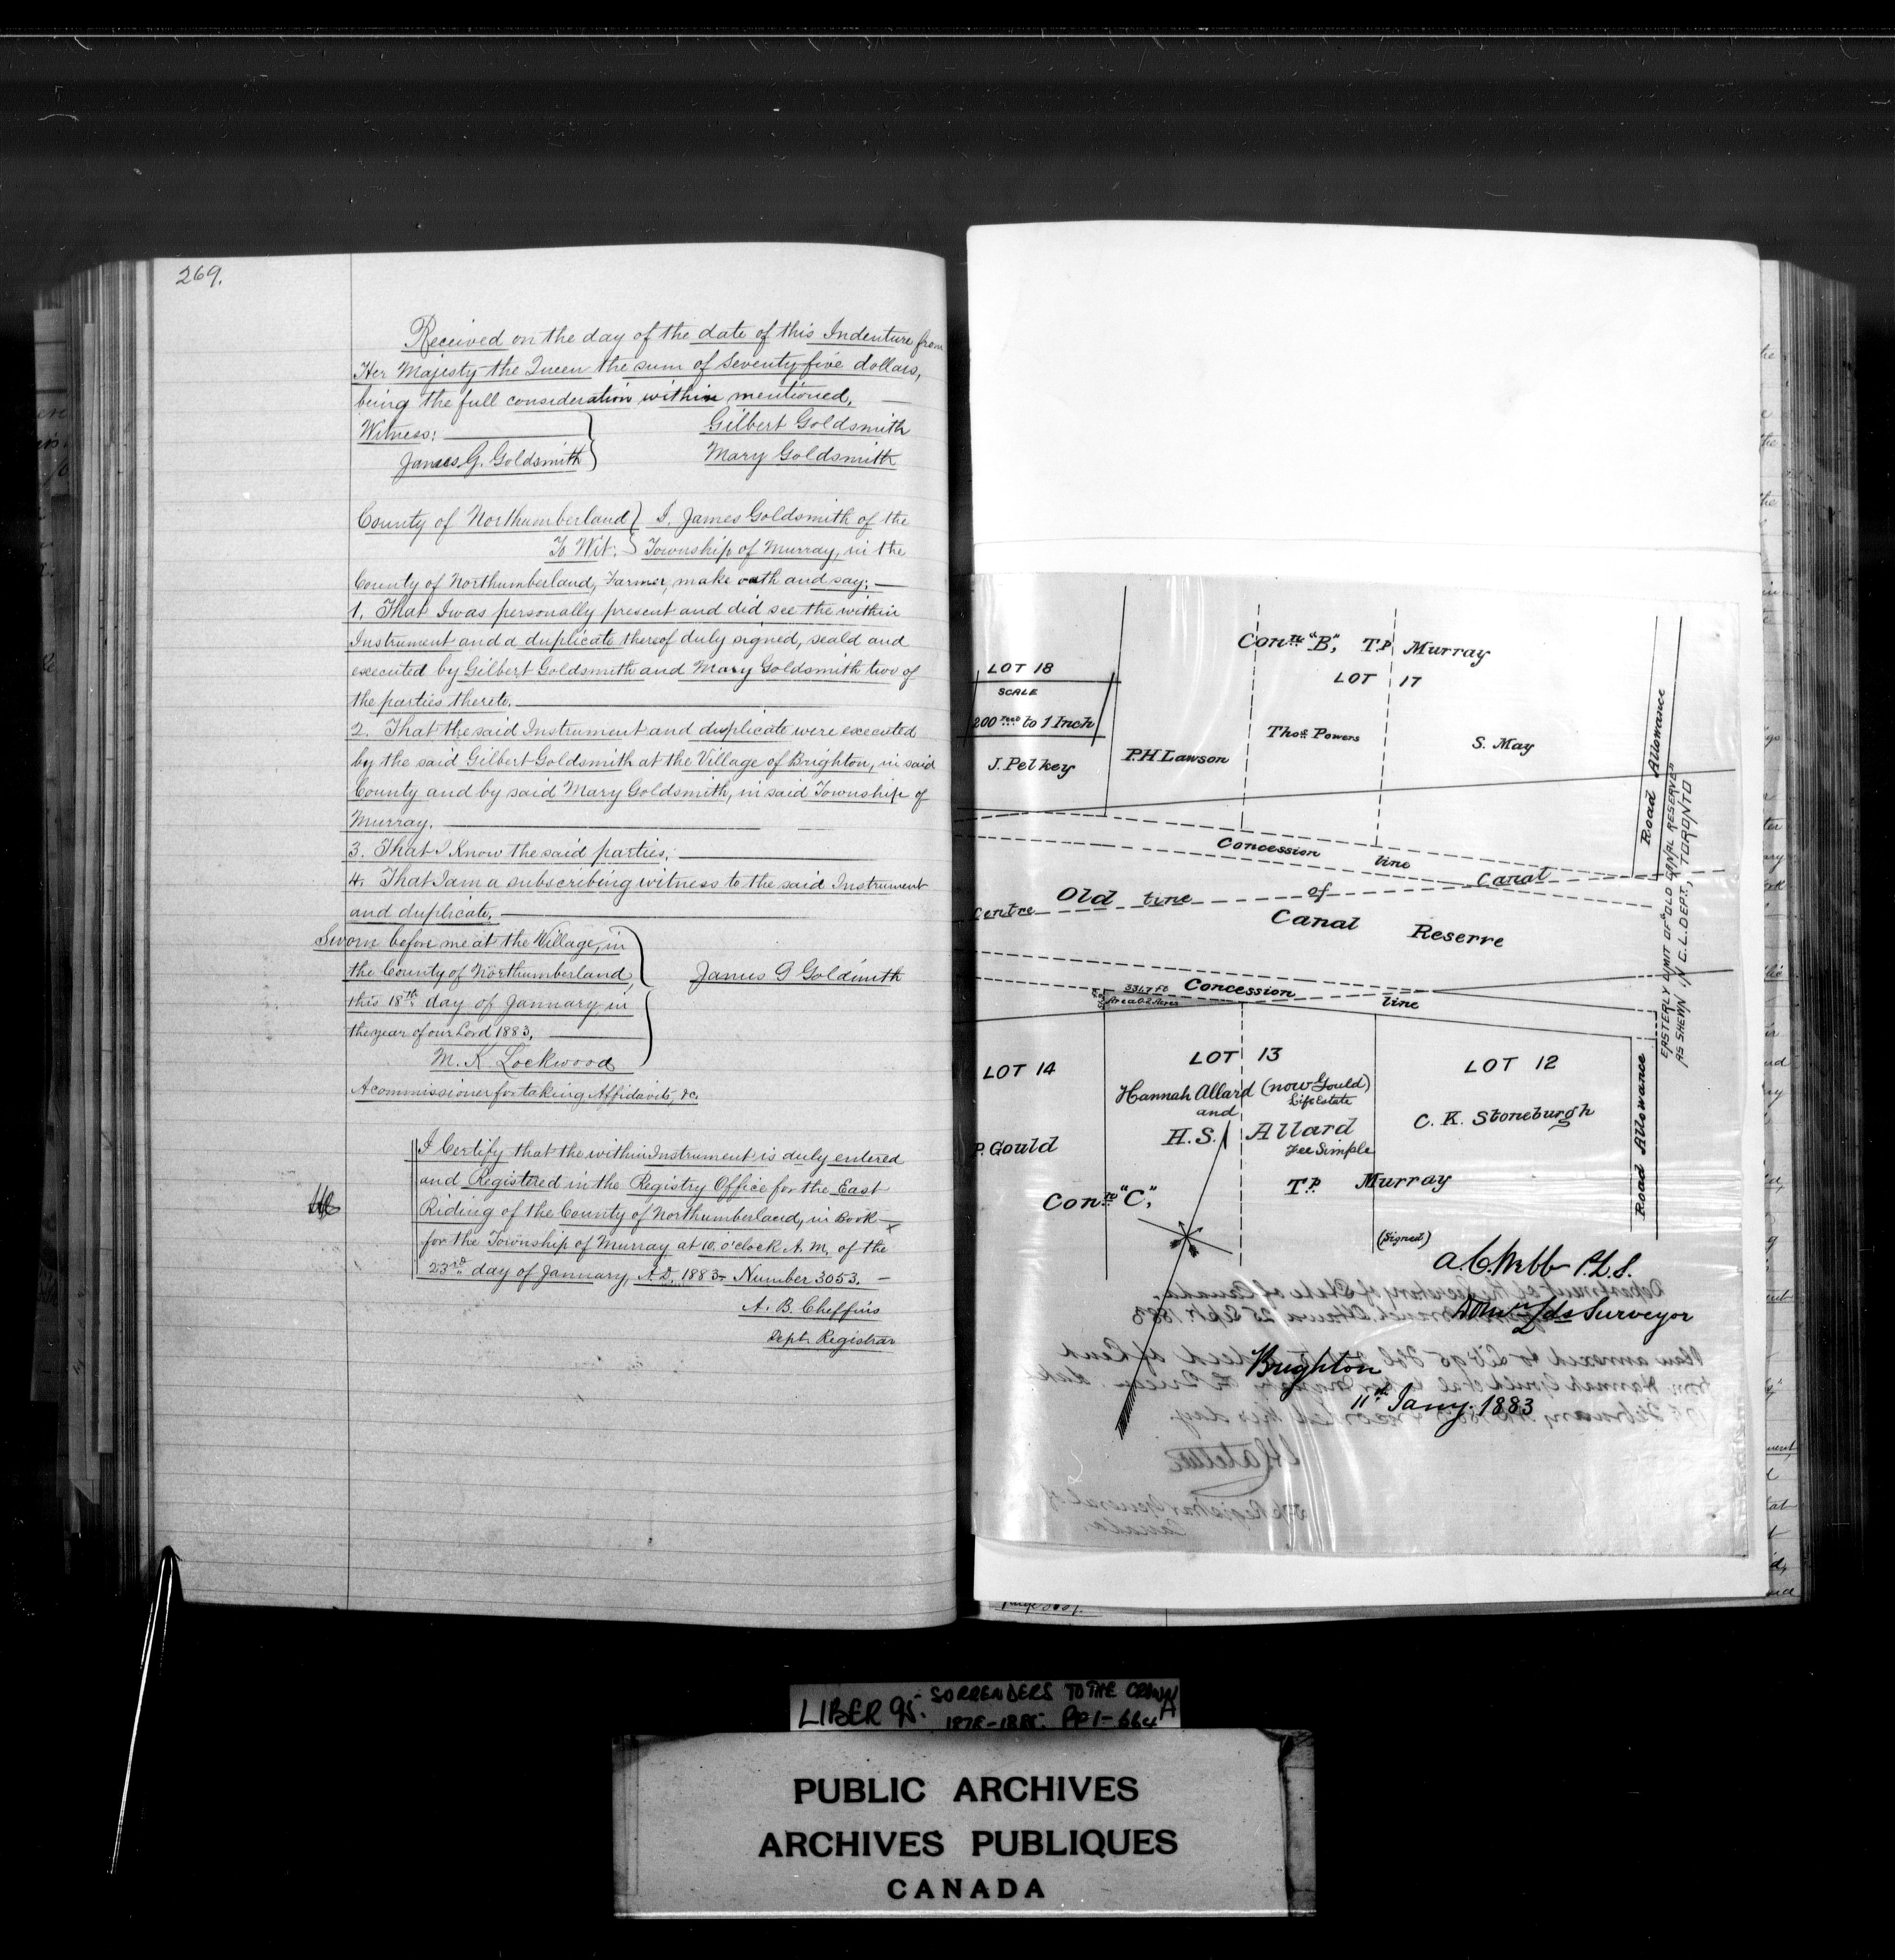 269.
Received on the day of the date of this Indenture from
Her Majesty the Queen the sum of seventy five dollars,
being the full consideration within mentioned.
Witness:
Gilbert Goldsmith
James G. Goldsmith
Mary Goldsmith
County of Northumberland } I, James Goldsmith of the
To Wit: } Township of Murray, in the
County of Northumberland, Farmer, make oath and say:
1. That I was personally present and did see the within
Instrument and a duplicate thereof duly signed, seald and
executed by Gilbert Goldsmith and Mary Goldsmith two of
the parties thereto.
2. That the said Instrument and duplicate were executed
by the said Gilbert Goldsmith at the Village of Brighton, in said
County and by said Mary Goldsmith, in said Township of
Murray.
3. That I Know the said parties;
4. That I am a subscribing witness to the said Instrument
and duplicate.
Sworn before me at the Village, in
the County of Northumberland,
this 18th day of January in
the year of our Lord 1883.
James G Goldsmith
M. K. Lockwood
A commissioner for taking Affidavits, &c.
I Certify that the within Instrument is duly entered
and Registered in the Registry Office for the East
Riding of the County of Northumberland, in Book
for the Township of Murray at 10, o'clock A. M. of the
23rd day of January, A.D. 1883. Number 3053.
A. B. Cheffins
Dept. Registrar
Con.n "B", T.P. Murray
LOT 18
LOT 17
SCALE
200 Feet to 1 Inch
J. Pelkey
P.H Lawson
Thos Powers
S. May
Road Allowance
Concession line
Centre Old line of Canal
Canal Reserve
EASTERLY LIMIT OF "OLD CANAL RESERVE"
AS SHEWN IN C.L. DEPT., TORONTO
331.7 ft Concession line
Area 0.2 Acres
LOT 14
LOT 13
LOT 12
Hannah Allard (now Gould)
Life Estate
and
H.S. Allard
Fee Simple
C. K. Stoneburgh
P. Gould
Road Allowance
Con.n "C",
T.P. Murray
(Signed)
A. C. Webb P.L.S.
Domn Lds Surveyor
Brighton
11th Jany. 1883
LIBER 95: SURRENDERS TO THE CROWN
PP 1-664
PUBLIC ARCHIVES
ARCHIVES PUBLIQUES
CANADA